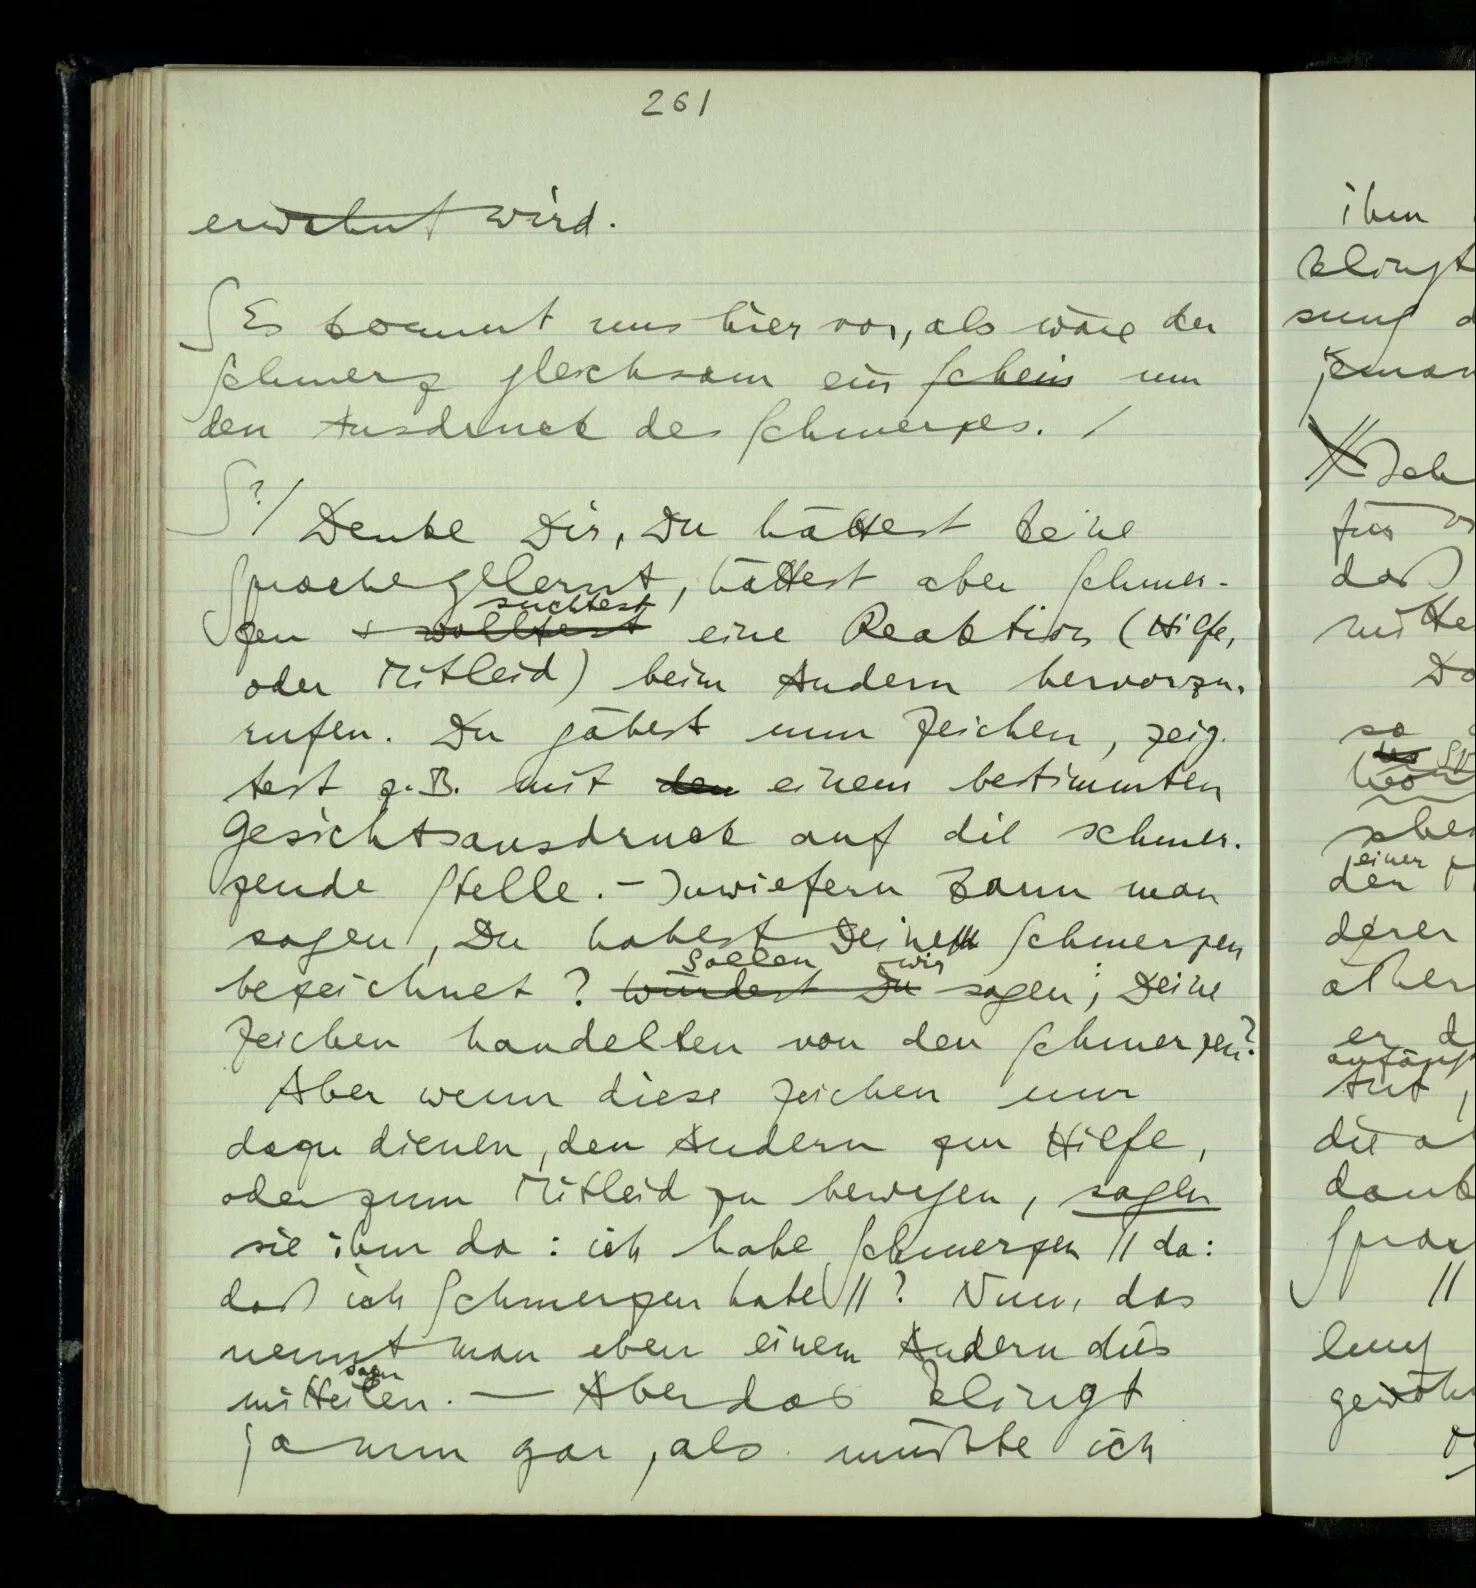 261
erwähnt wird.
∫ Es kommt uns hier vor, als wäre der
Schmerz gleichsam ein Schein um
den Ausdruck des Schmerzes. /
∫ ?/ Denke Dir, Du hättest keine
Sprache gelernt, hättest aber Schmer-
zen & wolltest suchtest eine Reaktion (Hilfe,
oder Mitleid) beim Andern hervorzu-
rufen. Du gäbest nun Zeichen, zeig-
test z.B. mit den einem bestimmten
Gesichtsausdruck auf die schmer-
zende Stelle. – Inwiefern kann man
sagen, Du habest Deine Schmerzen
bezeichnet? Würdest Du Sollen wir sagen, Deine
Zeichen handelten von den Schmerzen?
Aber wenn diese Zeichen nur
dazu dienen, den Andern zur Hilfe,
oder zum Mitleid zu bewegen, sagen
sie ihm da: ich habe Schmerzen // da:
daß ich Schmerzen habe //? Nun, das
nennt man eben einem Andern dies
mitteilen. sagen — Aber das klingt
ja nun gar, als müßte ich
ihm
klingt
für
daß
so
einer
den
derer
er
tut,
//